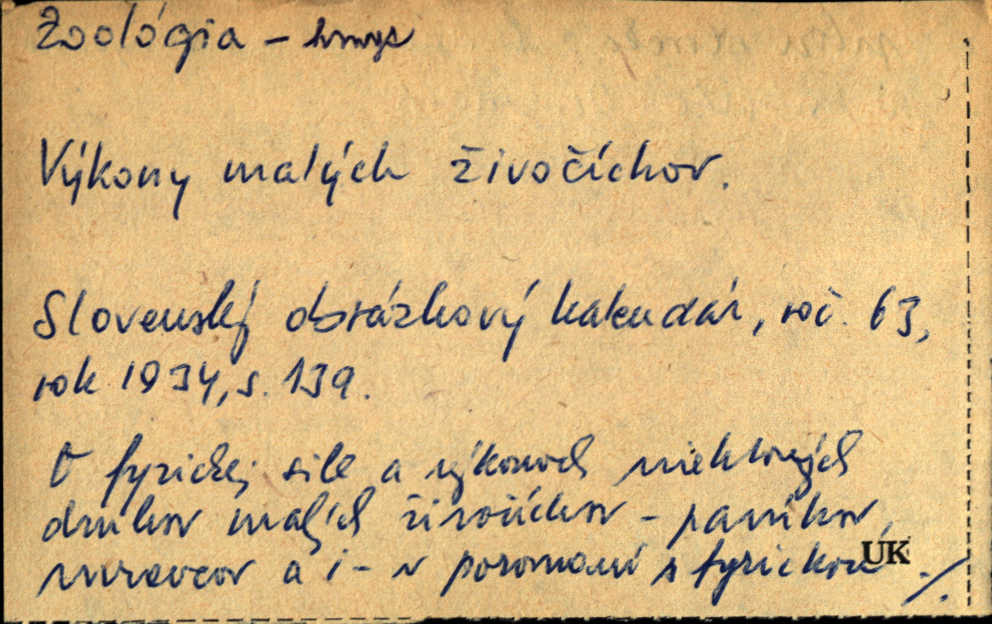 Zoológia - hmyz
Výkony malých živočíchov.
Slovenský obrázkový kalendár, roč. 63,
rok 1934, s. 139.
O fyzickej sile a výkonoch niektorých
druhov malých živočíchov - pavúkov,
mravcov a i - v porovnaní s fyzickou
UK ./.